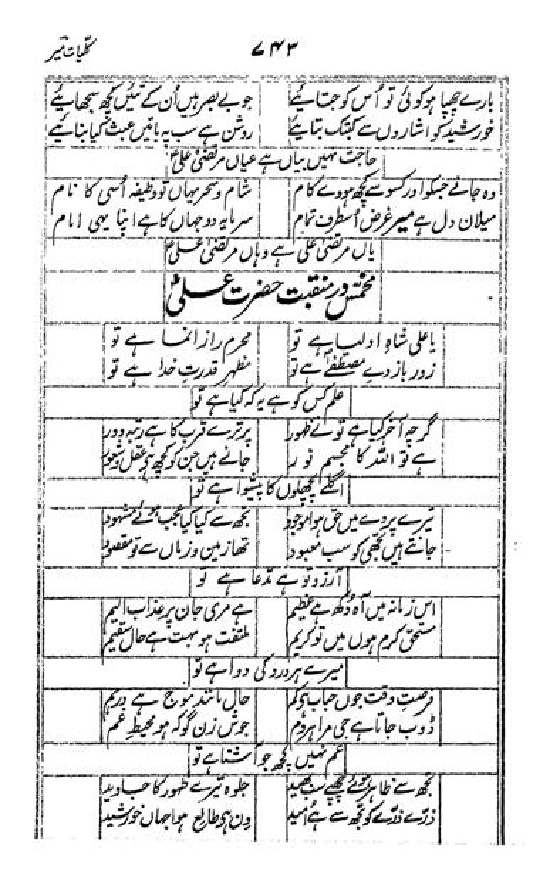 کلیات میر
۷۴۳
بارے چھپا ہو کوئی تو اُس کو جتائیے جو بے بصر ہیں اُن کے تئیں کچھ سجھائیے
خورشید کو اشاروں سے کب تک بتائیے روشن ہے سب پہ باتیں عبث کیا بنائیے
حاجت نہیں بیاں ہے عیاں مرتضیٰ علیؑ
وہ جانے جسکو اور کسو سے کچھ ہووے کام شام و سحر یہاں تو وظیفہ اُسی کا نام
میلان دل ہے میر غرض اُسطرف تمام سرمایہ دو جہاں کا ہے اپنا یہی امام
یاں مرتضیٰ علی ہے وہاں مرتضیٰ علیؑ
مخمس در منقبت حضرت علیؑ
یا علی شاہِ اولیا ہے تو محرم راز انما ہے تو
زور بازوے مصطفےٰ ہے تو مظہر قدرتِ خدا ہے تو
علم کس کو ہے یہ کہ کیا ہے تو
گرچہ آخر کیا ہے تونے ظہور پر ترے قرب کا ہے رتبہ دور
ہے تو اللہ کا مجسم نور جانے ہیں جن کو کچھ ہے عقل و شعور
اگلے پچھلوں کا پیشوا ہے تو
تیرے پردے میں حق ہوا موجود تجھ سے کیا کیا عجب ہوئے مشہود
جانتے ہیں تجھی کو سب معبود تھا زمین و زماں سے تو مقصود
آرزو تو ہے مدعا ہے تو
اس زمانہ میں آہ دُکھ ہے عظیم ہے مری جان پر عذاب الیم
مستحق کرم ہوں میں تو کریم ملتفت ہو بہت ہے حال سقیم
میرے ہر درد کی دوا ہے تو
فرصتِ وقت جوں حباب ہے کم حال مانند موج ہے درہم
ڈوب جاتا ہے جی مرا ہر دم جوش زن گو کہ ہو محیطِ غم
غم نہیں کچھ جو آشنا ہے تو
تجھ سے ظاہر ہوئے چھپے سب بھید جلوہ تیرے ظہور کا جاوید
ذرّے ذرّے کو تجھ سے ہے اُمید دن ہی طالع ہوا جہاں خورشید